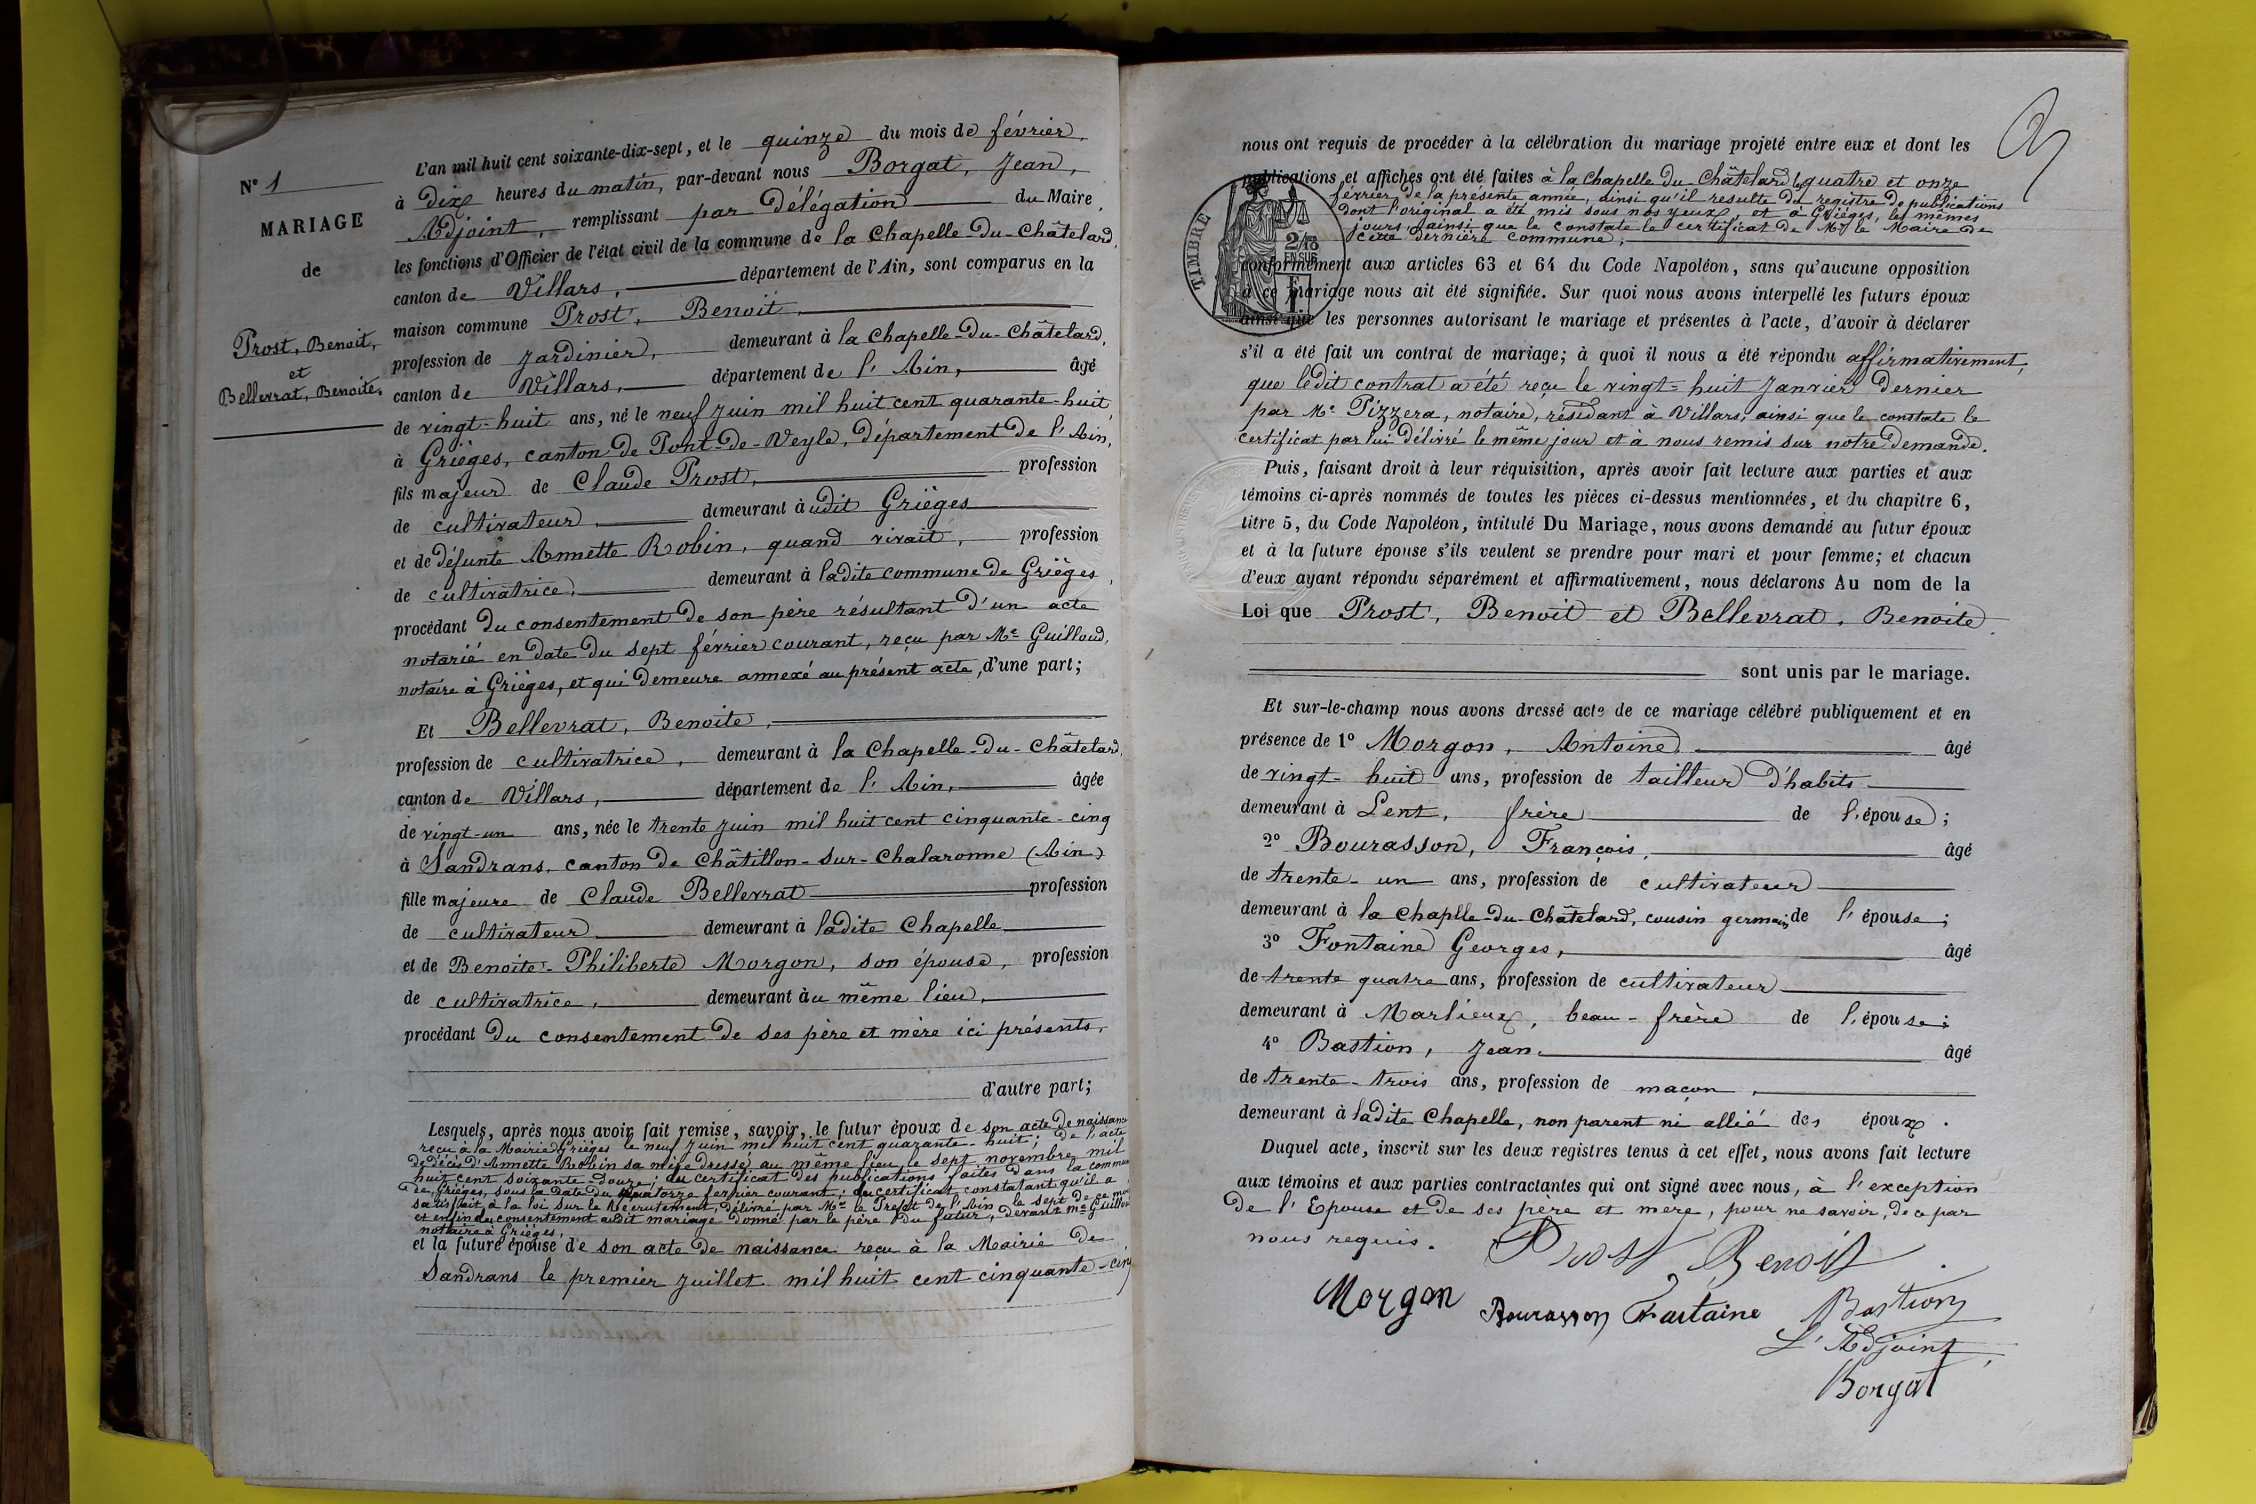 N° 1
MARIAGE
de
Prost, Benoit,
et
Bellevrat, Benoite.
L'an mil huit cent soixante-dix-sept, et le quinze du mois de février,
à Dix heures du matin, par-devant nous Borgat, Jean,
Adjoint, remplissant par Délégation du Maire,
les fonctions d'Officier de l'état civil de la commune de la Chapelle-Du-Châtelard,
canton de Villars, département de l'Ain, sont comparus en la
maison commune Prost, Benoit,
profession de Jardinier, demeurant à la Chapelle-Du-Châtelard,
canton de Villars, département de l'Ain, âgé
de vingt-huit ans, né le neuf Juin mil huit cent quarante-huit,
à Grièges, canton de Pont-de-Veyle, Département de l'Ain,
fils majeur de Claude Prost, profession
de cultivateur, demeurant àudit Grièges
et de Défunte Annette Robin, quand vivait, profession
de cultivatrice, demeurant à ladite commune de Grièges,
procédant Du consentement de son père résultant d'un acte
notarié en date du sept février courant, reçu par Me Guilloud,
notaire à Grièges, et qui Demeure annexé au présent acte, d'une part;
Et Bellevrat, Benoite,
profession de cultivatrice, demeurant à la Chapelle-Du-Châtelard,
canton de Villars, département de l'Ain, âgée
de vingt-un ans, née le trente Juin mil huit cent cinquante-cinq
à Sandrans, canton de Châtillon-sur-Chalaronne (Ain)
fille majeure de Claude Bellevrat profession
de cultivateur demeurant à ladite Chapelle
et de Benoite-Philiberte Morgon, son épouse, profession
de cultivatrice, demeurant àu même lieu,
procédant Du consentement de ses père et mère ici présents,
d'autre part;
Lesquels, après nous avoir fait remise, savoir, le futur époux de son acte de naissance
reçu à la Mairie Grièges le neuf Juin mil huit cent quarante-huit; de l'acte
de décès d'Annette Robin sa mère dressé au même lieu le sept novembre mil
huit cent soixante-douze; du certificat des publications faites dans la commune
de Grièges, sous la date du quatorze février courant; du certificat constatant qu'il a
satisfait à la loi sur le Recrutement, délivré par Mr le Préfet de l'Ain le sept de ce mois
et enfin du consentement audit mariage donné par le père du futur, devant Me Guilloud
notaire à Grièges,
et la future épouse de son acte de naissance reçu à la Mairie de
Sandrans le premier Juillet mil huit cent cinquante-cinq
nous ont requis de procéder à la célébration du mariage projeté entre eux et dont les
publications et affiches ont été faites à la Chapelle Du Châtelard les quatre et onze
février de la présente année, ainsi qu'il résulte du registre de publications
dont l'original a été mis sous nos yeux, et à Grièges, les mêmes
jours, ainsi que le constate le certificat de Mr le Maire de
cette dernière commune,
TIMBRE
2/10
EN SUS
conformément aux articles 63 et 64 du Code Napoléon, sans qu'aucune opposition
à ce mariage nous ait été signifiée. Sur quoi nous avons interpellé les futurs époux
ainsi que les personnes autorisant le mariage et présentes à l'acte, d'avoir à déclarer
s'il a été fait un contrat de mariage; à quoi il nous a été répondu affirmativement,
que ledit contrat a été reçu le vingt-huit Janvier dernier
par Me Pizzera, notaire, résidant à Villars, ainsi que le constate le
certificat par lui délivré le même jour et à nous remis sur notre demande.
Puis, faisant droit à leur réquisition, après avoir fait lecture aux parties et aux
témoins ci-après nommés de toutes les pièces ci-dessus mentionnées, et du chapitre 6,
titre 5, du Code Napoléon, intitulé Du Mariage, nous avons demandé au futur époux
et à la future épouse s'ils veulent se prendre pour mari et pour femme; et chacun
d'eux ayant répondu séparément et affirmativement, nous déclarons Au nom de la
Loi que Prost, Benoit et Bellevrat, Benoite
sont unis par le mariage.
Et sur-le-champ nous avons dressé acte de ce mariage célébré publiquement et en
présence de 1° Morgon, Antoine âgé
de vingt-huit ans, profession de tailleur d'habits
demeurant à Lent, frère de l'épouse;
2° Bourasson, François, âgé
de trente-un ans, profession de cultivateur
demeurant à la Chaplle-Du-Châtelard, cousin germain de l'épouse;
3° Fontaine Georges, âgé
de trente quatre ans, profession de cultivateur
demeurant à Marlieux, beau-frère de l'épouse;
4° Bastion, Jean. âgé
de trente-trois ans, profession de maçon,
demeurant à ladite Chapelle, non parent ni allié des époux.
Duquel acte, inscrit sur les deux registres tenus à cet effet, nous avons fait lecture
aux témoins et aux parties contractantes qui ont signé avec nous, à l'exception
De l'Epouse et de ses père et mère, pour ne savoir, de ce par
nous requis.
Prost Benoit
Morgon Bourasson Fontaine Bastion
L'Adjoint,
Borgat